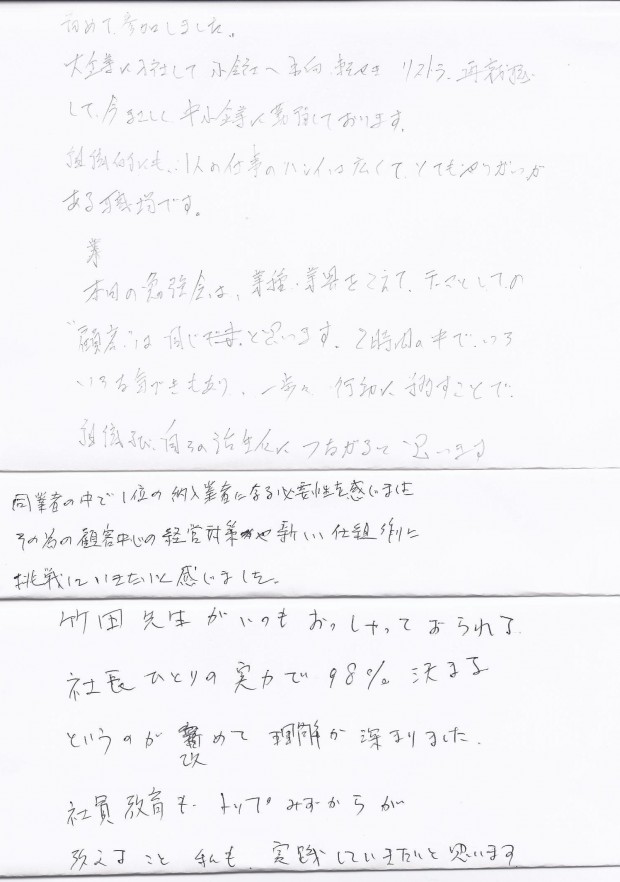 初めて参加しました。
大企業に入社して 小会社へ出向、転せき リストラ、再就職
して、今 まさしく 中小企業に勤務しております。
組織的にも、1人の仕事のハンイは広くて、とてもやりがいが
ある職場です。
業
本日の勉強会は、業種・業界をこえて、としての
"顧客"は同じだ と思います。2時間の中で、いろ
いろな気づきもあり、一歩々 行動に移すことで、
組織 自らの活性化に つながると 思います
同業者の中で1位の納入業者になる必要性を感じました
その為の顧客中心の経営対策や新しい仕組作りに
挑戦していきたいと感じました。
竹田先生がいつもおっしゃっておられる
社長ひとりの実力で98%決まる
というのが 改めて 理解が深まりました。
社員教育も、トップみずからが
教えること 私も、実践していきたいと思います